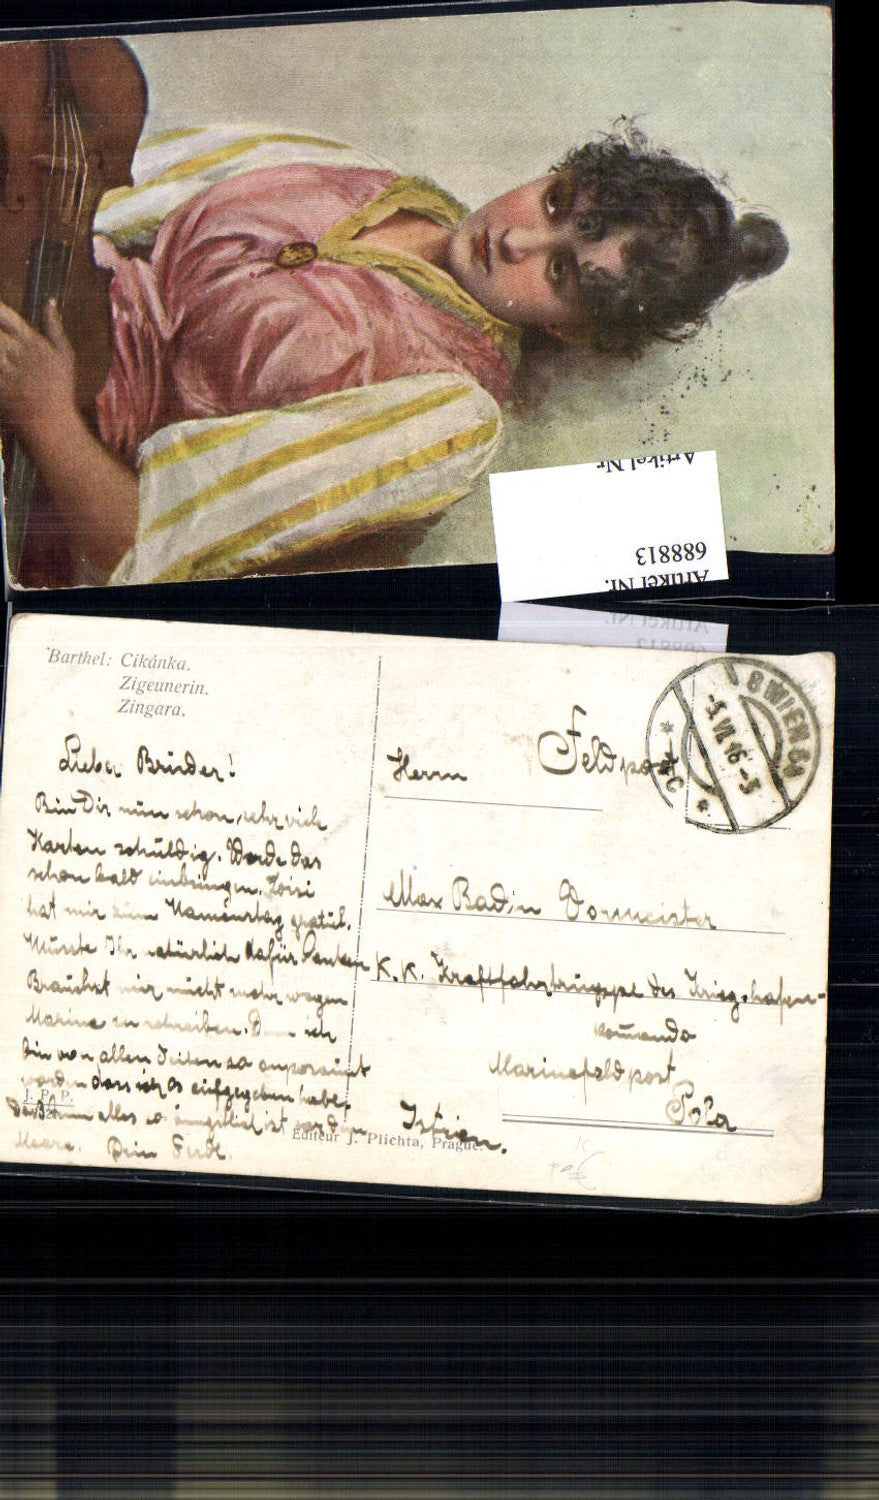 Artikel Nr.
688813
Artikel Nr.
Barthel: Cikánka.
Zigeunerin.
Zingara.
Lieber Bruder!
Bin Dir nun schon sehr viele
Karten schuldig. Werde das
schon bald einbringen. Loisi
hat mir zum Namenstag gratul.
Müsste Ihr natürlich dafür danken
Brauchst mir nicht mehr wegen
Marine zu schreiben. Denn ich
bin von allen Seiten so
worden dass ich es aufgegeben habe,
alles so ängstlich ist vor dem
Meere. Dein Ferdl.
J. P. P.
Editeur J. Plichta, Prague.
Feldpost
8 WIEN 64
-5.VI.16-3
Herrn
Max Badin Dormeister
K.K. Kraftfahrtruppe des Kriegshafen-
kommando
Marinefeldpost
Pola
Istrien.